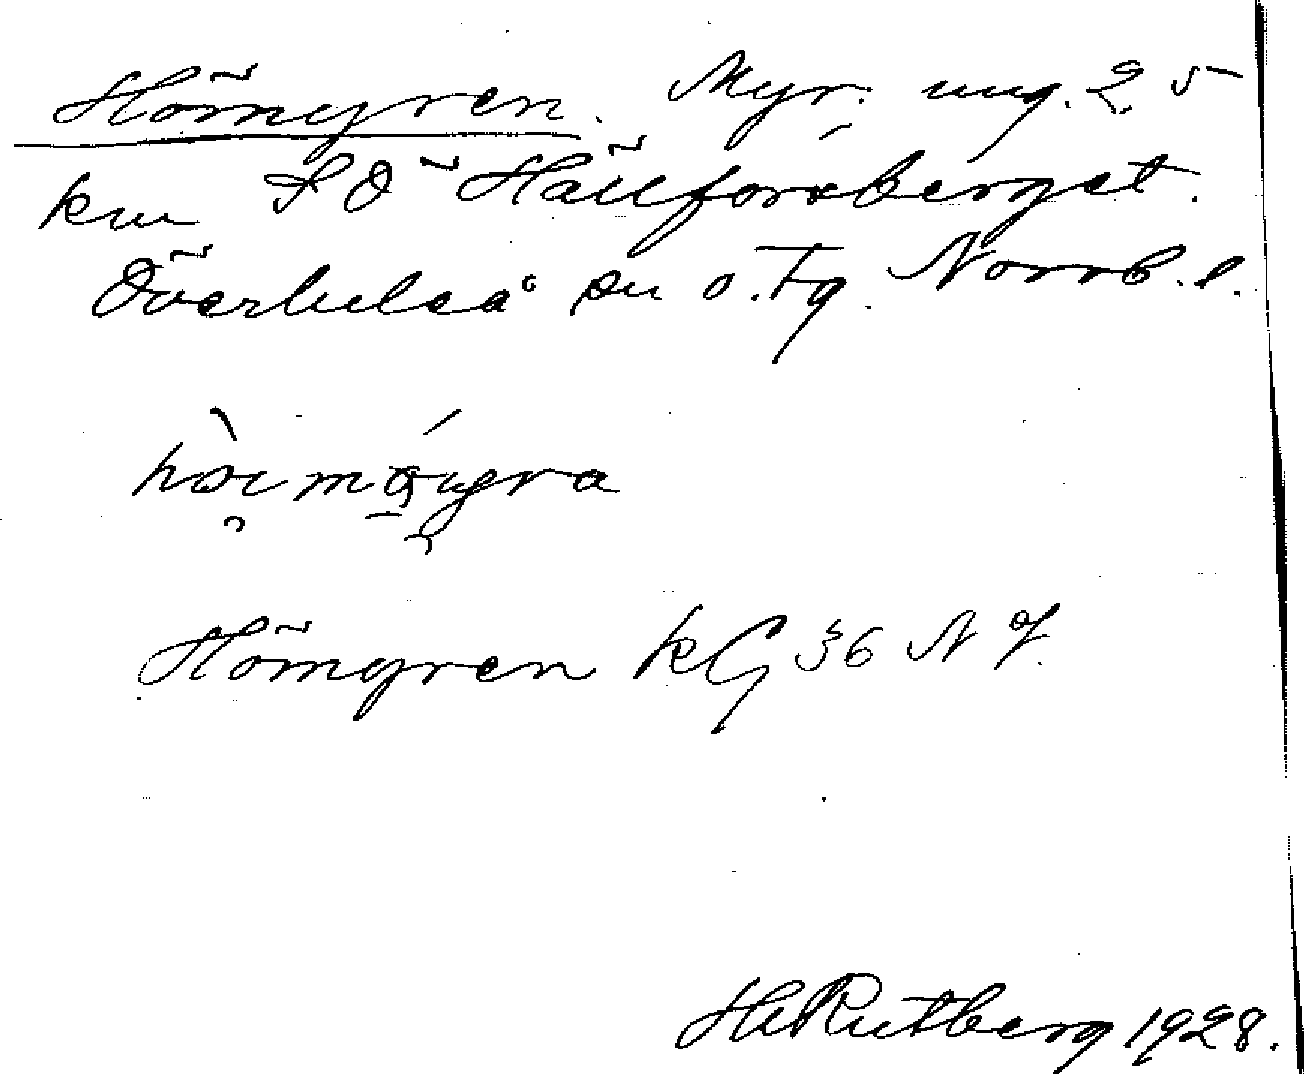 Hömyren. Myr. ung. 2,5
km SÖ Hällforsberget.
Överluleå sn o. Tg. Norrb. l.
Hömyren kG 36 NJ.
H Rutberg 1928.